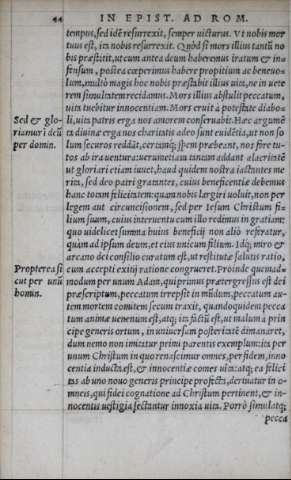 44 IN EPIST. AD ROM.
tempus, sed idẽ resurrexit, semper uicturus. Vt nobis mor
tuus est, ita nobis resurrexit. Quòd si mors illius tantũ no
bis præstitit, ut cum antea deum haberemus iratum & in=
fensum, postea cœperimus habere propitium ac beneuo=
lum, multò magis hoc nobis præstabit illius uita, ne in uete
rem simultatem recidamus. Mors illius abstulit peccatum,
uita tuebitur innocentiam. Mors eruit à potestate diabo=
Sed & glo- li, uita patris erga nos amorem conseruabit. Hæc argumẽ
riamur ĩ deũ ta diuinæ erga nos charitatis adeo sunt euidẽtia, ut non so
per domin. lum securos reddãt, certamq́; spem præbeant, nos fore tu=
tos ab ira uentura: uerumetiam tantam addant alacritatẽ
ut gloriari etiam iuuet, haud quidem nostra iactantes me
rita, sed deo patri gratantes, cuius beneficentiæ debemus
hanc totam felicitatem: quam nobis largiri uoluit, non per
legem aut circuncisionem, sed per Iesum Christum fi=
lium suum, cuius interuentu cum illo redimus in gratiam:
quo uidelicet summa huius beneficij non aliò referatur,
quàm ad ipsum deum, et eius unicum filium. Idq́; miro &
arcano dei consilio curatum est, ut restitutæ salutis ratio,
Propterea si cum accepti exitij ratione congrueret. Proinde quemad=
cut per unũ modum per unum Adam, qui primus prætergressus est dei
homin. præscriptum, peccatum irrepsit in mũdum, peccatum au=
tem mortem comitem secum traxit, quandoquidem pecca
tum animæ uenenum est, atq; ita factũ est, ut malum à prin
cipe generis ortum, in uniuersam posteritatẽ dimanaret,
dum nemo non imitatur primi parentis exemplum: ita per
unum Christum in quo renascimur omnes, per fidem, inno
centia inducta est, & innocentiæ comes uita: atq; ea felici
tas ab uno nouo generis principe profecta, deriuatur in o=
mneis, qui fidei cognatione ad Christum pertinent, & in=
nocentis uestigia sectantur innoxia uita. Porrò simulatq;
pecca